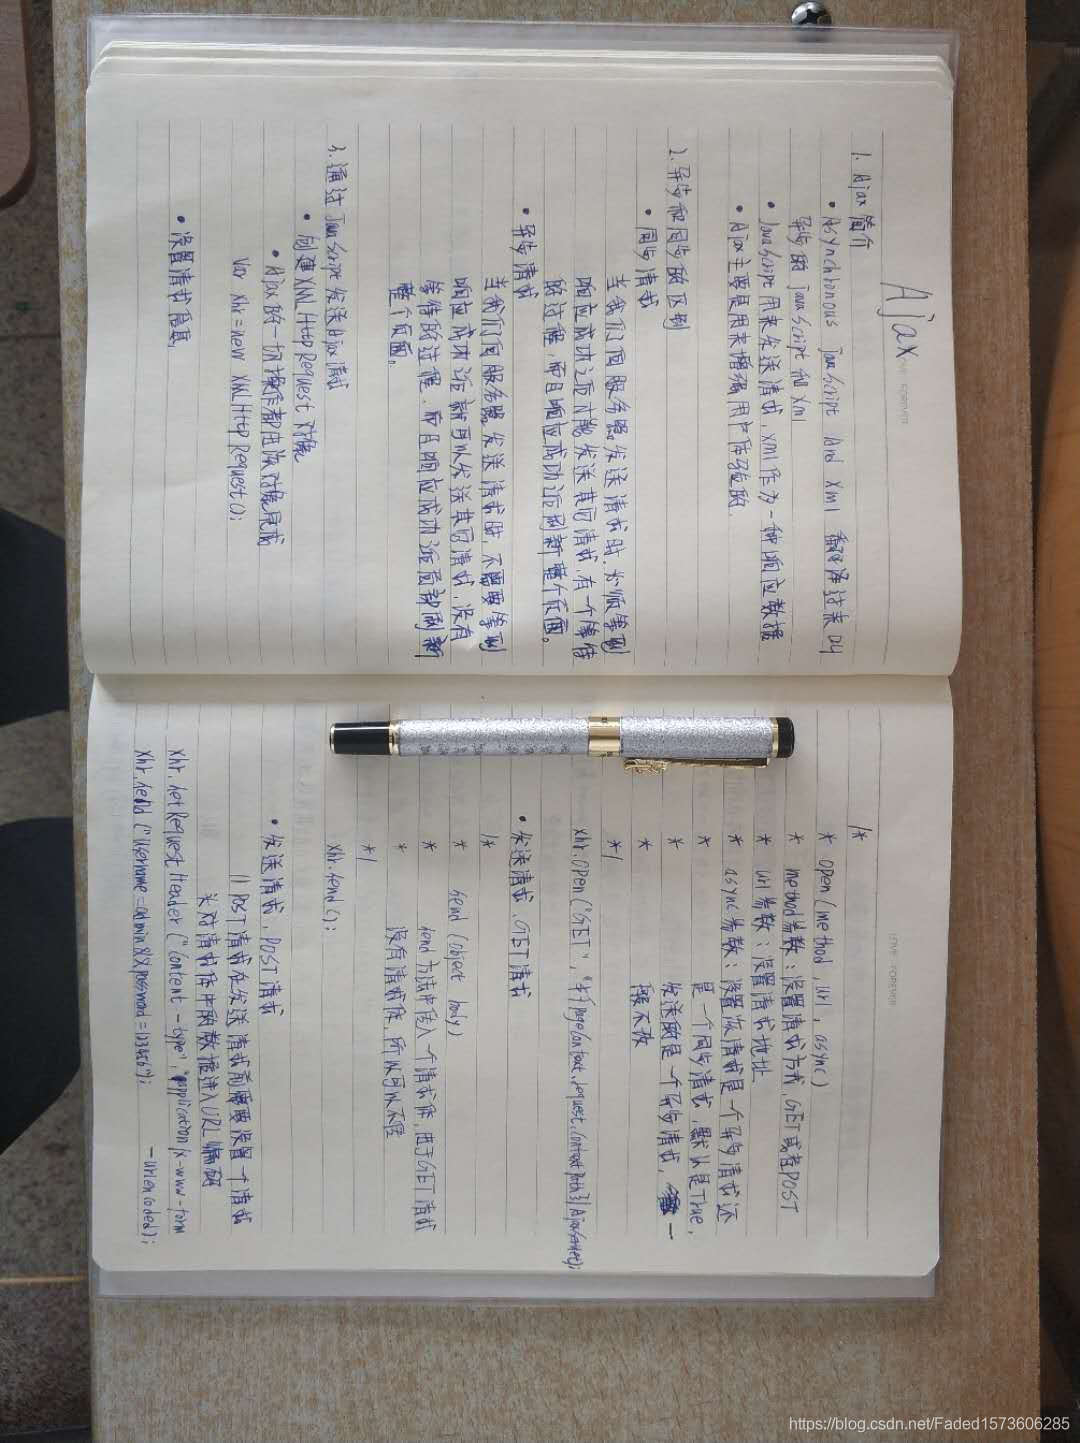 Ajax
LOVE FOREVER
1. Ajax 简介
• Asynchronous JavaScript And Xml 翻译过来叫
异步的 JavaScript 和 Xml
• JavaScript 用来发送请求，xml作为一种响应数据
• Ajax主要是用来增强用户体验的.
2. 异步和同步的区别
• 同步请求
当我们向服务器发送请求时，必须等到
响应成功之后才能发送其回请求，有一个等待
的过程，而且响应成功还刷新整个页面。
• 异步请求
当我们向服务器发送请求时，不需要等到
响应成功还就可以发送其回请求，没有
等待的过程，而且响应成功还局部刷新
整个页面。
3. 通过 JavaScript 发送Ajax请求
• 创建 XMLHttpRequest 对象
• Ajax的一切操作都由该对象完成
var xhr = new XMLHttpRequest();
• 设置请求信息
LOVE FOREVER
/*
* open(method, url, async)
* method参数：设置请求方式，GET或者POST
* url参数：设置请求地址
* async参数：设置该请求是一个异步请求还
* 是一个同步请求，默认是True，
* 发送的是一个异步请求，一
* 般不改
*/
xhr.open("GET", "${pageContext.request.contextPath}/AjaxServlet);
• 发送请求，GET请求
/*
* send(object body)
* send方法中传入一个请求体，用于GET请求
* 没有请求体，所以可以不传
*/
xhr.send();
• 发送请求，POST请求
// POST请求在发送请求前需要设置一个请求
头对请求体中的数据进入URL编码
xhr.setRequestHeader("Content-type", "application/x-www-form
-urlencoded);
xhr.send("username=admin&password=123456");
https://blog.csdn.net/Faded1573606285